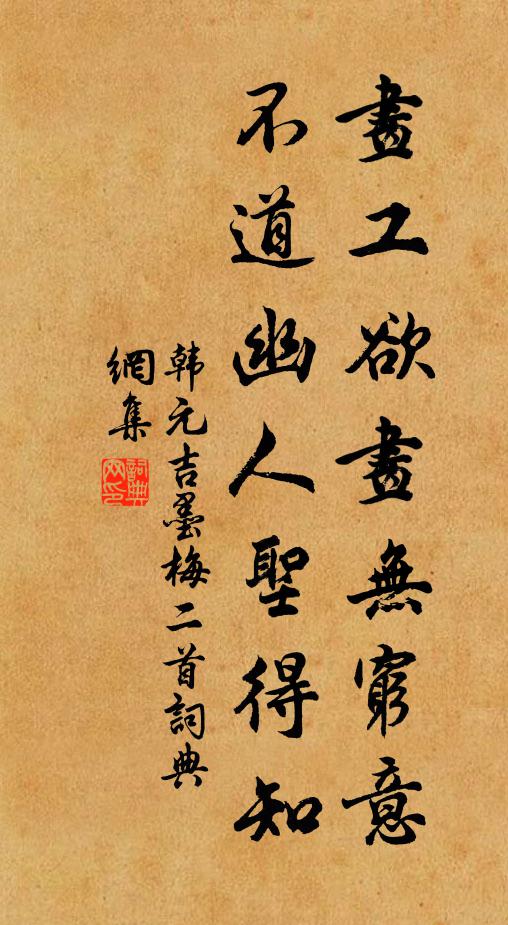 畫工欲畫無窮意
不道幽人聖得知
韩元吉墨梅二首詞典
網集
詞典
网印